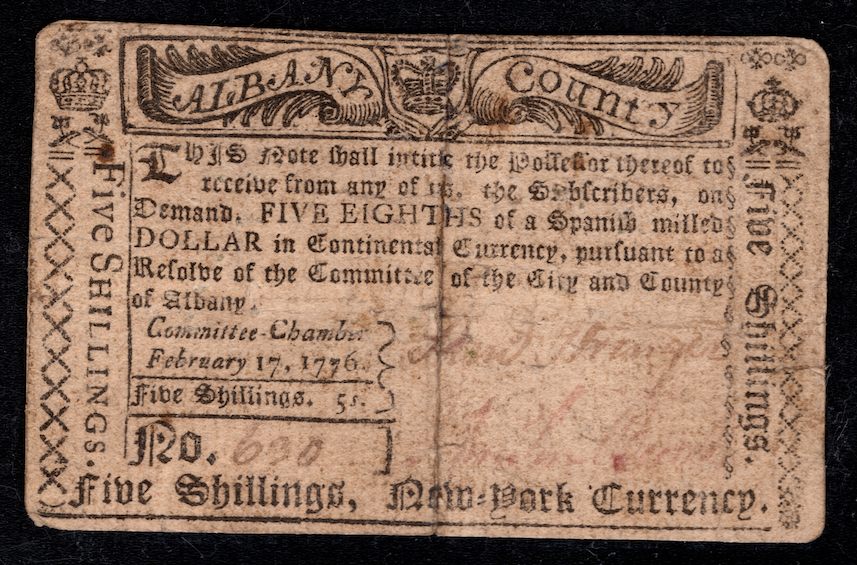 ALBANY County
THIS Note shall intitle the Possessor thereof to
receive from any of us, the Subscribers, on
Demand, FIVE EIGHTHS of a Spanish milled
DOLLAR in Continental Currency, pursuant to a
Resolve of the Committee of the City and County
of Albany.
Committee-Chamber
February 17, 1776.
Five Shillings. 5s.
No. 630
Five Shillings, New-York Currency.
Five SHILLINGS.
Five Shillings.